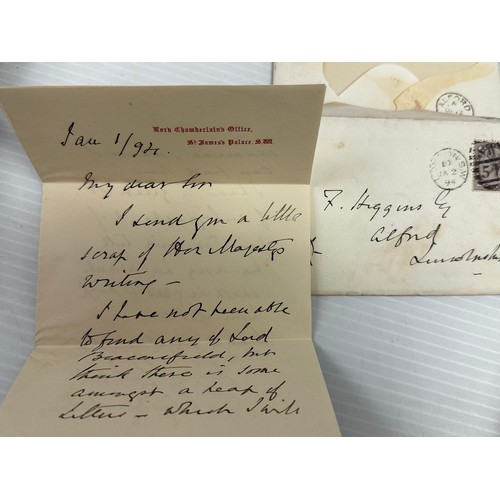 Lord Chamberlain's Office,
St James's Palace, S.W.
Jan 1/94
My dear Sir
I send you a little
scrap of Her Majesty's
writing -
I have not been able
to find any of Lord
Beaconsfield, but
think there is some
amongst a heap of
letters - which I will
ALFORD
JA 2
94
F. Higgins Esq
Alford
Lincolnshi